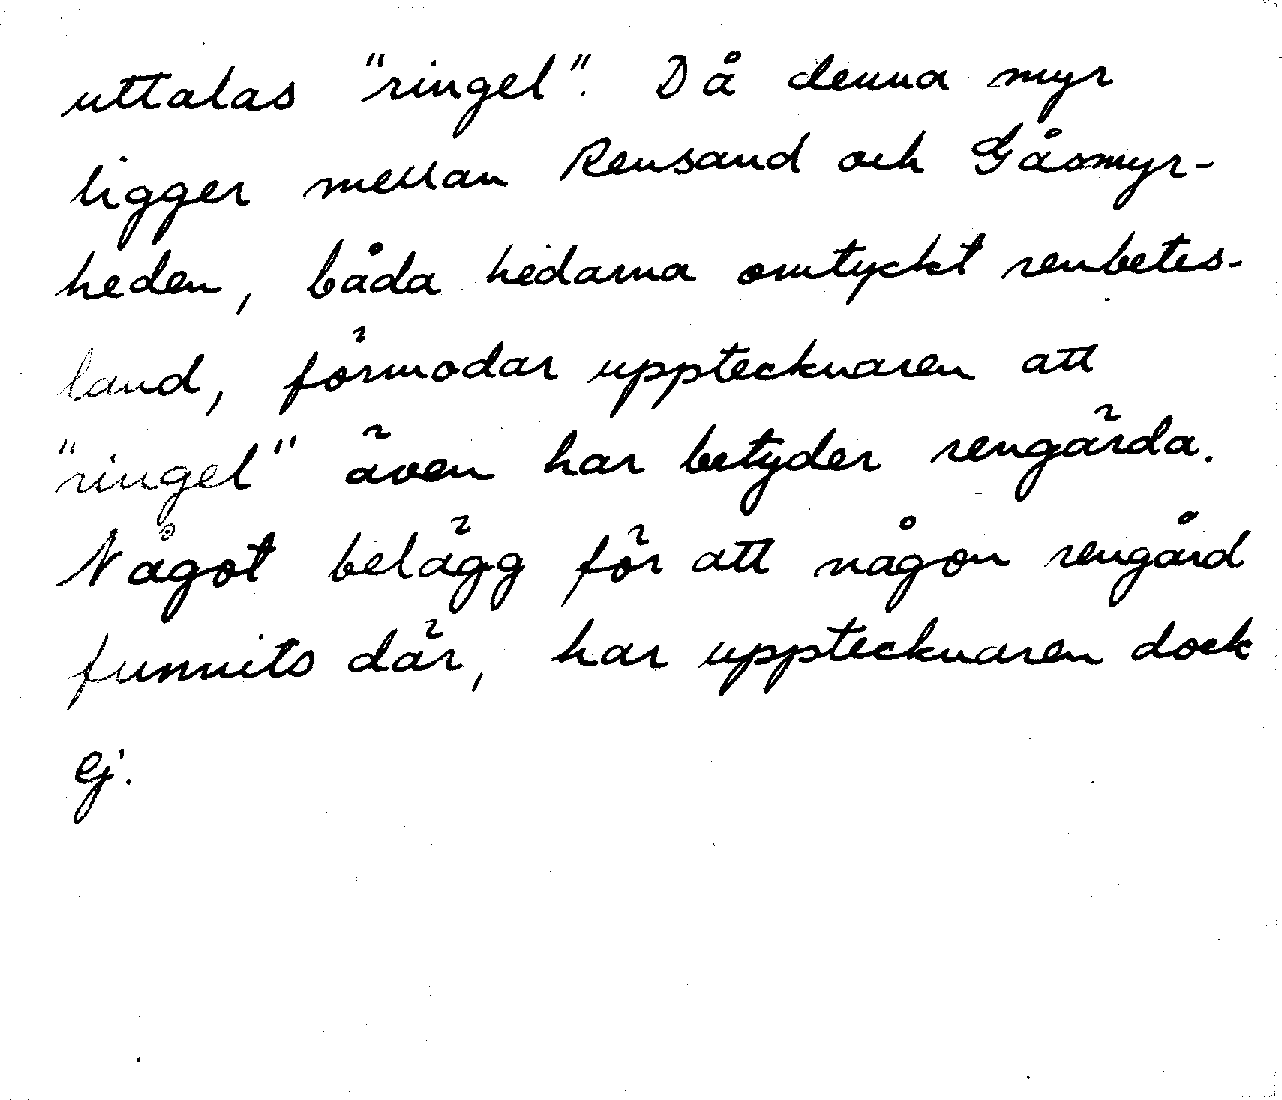 uttalas "ringel". Då denna myr
ligger mellan Rensand och Gåsmyr-
heden, båda hedarna omtyckt renbetes-
land, förmodar upptecknaren att
"ringel" även har betyder rengärda.
Något belägg för att någon rengård
funnits där, har upptecknaren dock
ej.